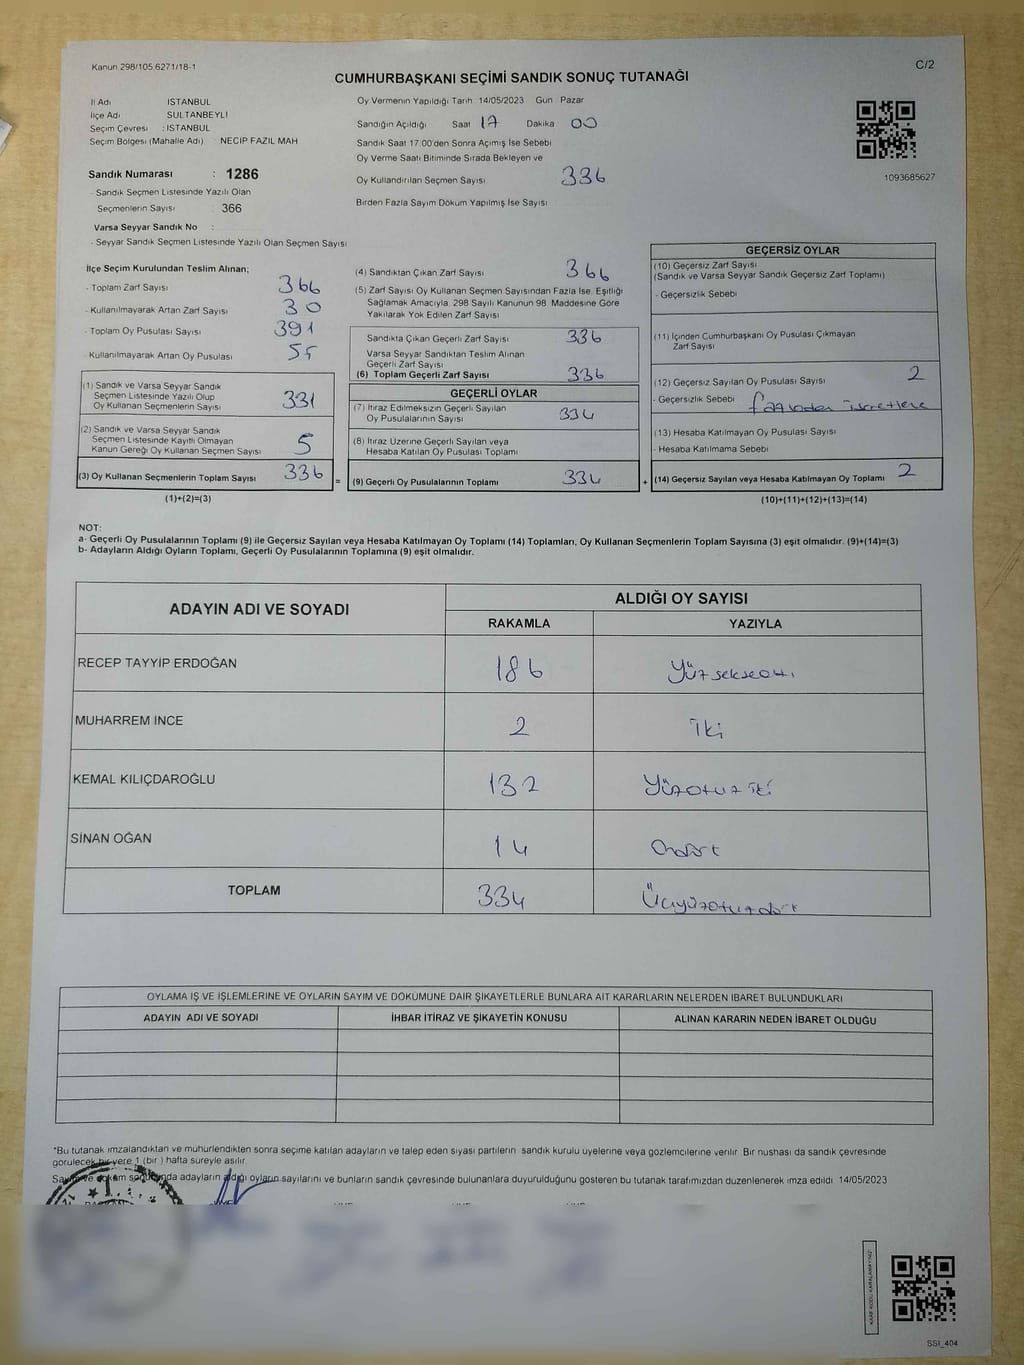 Kanun 298/105.6271/18-1
C/2
CUMHURBAŞKANI SEÇİMİ SANDIK SONUÇ TUTANAĞI
İl Adı ISTANBUL
İlçe Adı SULTANBEYLİ
Seçim Çevresi : ISTANBUL
Seçim Bölgesi (Mahalle Adı) NECİP FAZIL MAH
Sandık Numarası : 1286
- Sandık Seçmen Listesinde Yazılı Olan
Seçmenlerin Sayısı : 366
Varsa Seyyar Sandık No :
- Seyyar Sandık Seçmen Listesinde Yazılı Olan Seçmen Sayısı
Oy Vermenin Yapıldığı Tarih 14/05/2023 Gün Pazar
Sandığın Açıldığı Saat 17 Dakika 00
Sandık Saat 17:00'den Sonra Açımış İse Sebebi
Oy Verme Saati Bitiminde Sırada Bekleyen ve
Oy Kullandırılan Seçmen Sayısı 336
Birden Fazla Sayım Döküm Yapılmış İse Sayısı
1093685627
İlçe Seçim Kurulundan Teslim Alınan;
- Toplam Zarf Sayısı 366
- Kullanılmayarak Artan Zarf Sayısı 30
- Toplam Oy Pusulası Sayısı 391
- Kullanılmayarak Artan Oy Pusulası 55
(1) Sandık ve Varsa Seyyar Sandık
Seçmen Listesinde Yazılı Olup
Oy Kullanan Seçmenlerin Sayısı 331
(2) Sandık ve Varsa Seyyar Sandık
Seçmen Listesinde Kayıtlı Olmayan
Kanun Gereği Oy Kullanan Seçmen Sayısı 5
(3) Oy Kullanan Seçmenlerin Toplam Sayısı 336
(1)+(2)=(3)
=
(4) Sandıktan Çıkan Zarf Sayısı 366
(5) Zarf Sayısı Oy Kullanan Seçmen Sayısından Fazla İse, Eşitliği
Sağlamak Amacıyla, 298 Sayılı Kanunun 98. Maddesine Göre
Yakılarak Yok Edilen Zarf Sayısı
Sandıkta Çıkan Geçerli Zarf Sayısı 336
Varsa Seyyar Sandıktan Teslim Alınan
Geçerli Zarf Sayısı
(6) Toplam Geçerli Zarf Sayısı 336
GEÇERLİ OYLAR
(7) İtiraz Edilmeksizin Geçerli Sayılan
Oy Pusulalarının Sayısı 334
(8) İtiraz Üzerine Geçerli Sayılan veya
Hesaba Katılan Oy Pusulası Toplamı
(9) Geçerli Oy Pusulalarının Toplamı 334
+
GEÇERSİZ OYLAR
(10) Geçersiz Zarf Sayısı
(Sandık ve Varsa Seyyar Sandık Geçersiz Zarf Toplamı)
- Geçersizlik Sebebi
(11) İçinden Cumhurbaşkanı Oy Pusulası Çıkmayan
Zarf Sayısı
(12) Geçersiz Sayılan Oy Pusulası Sayısı 2
- Geçersizlik Sebebi
(13) Hesaba Katılmayan Oy Pusulası Sayısı
- Hesaba Katılmama Sebebi
(14) Geçersiz Sayılan veya Hesaba Katılmayan Oy Toplamı 2
(10)+(11)+(12)+(13)=(14)
NOT:
a- Geçerli Oy Pusulalarının Toplamı (9) ile Geçersiz Sayılan veya Hesaba Katılmayan Oy Toplamı (14) Toplamları, Oy Kullanan Seçmenlerin Toplam Sayısına (3) eşit olmalıdır. (9)+(14)=(3)
b- Adayların Aldığı Oyların Toplamı, Geçerli Oy Pusulalarının Toplamına (9) eşit olmalıdır.
ADAYIN ADI VE SOYADI
ALDIĞI OY SAYISI
RAKAMLA YAZIYLA
RECEP TAYYİP ERDOĞAN 186 Yüzseksenaltı
MUHARREM İNCE 2 İki
KEMAL KILIÇDAROĞLU 132 Yüzotuz iki
SİNAN OĞAN 14 Ondört
TOPLAM 334 Üçyüzotuzdört
OYLAMA İŞ VE İŞLEMLERİNE VE OYLARIN SAYIM VE DÖKÜMÜNE DAİR ŞİKAYETLERLE BUNLARA AİT KARARLARIN NELERDEN İBARET BULUNDUKLARI
ADAYIN ADI VE SOYADI İHBAR İTİRAZ VE ŞİKAYETİN KONUSU ALINAN KARARIN NEDEN İBARET OLDUĞU
*Bu tutanak imzalandıktan ve mühürlendikten sonra seçime katılan adayların ve talep eden siyasi partilerin sandık kurulu üyelerine veya gözlemcilerine verilir. Bir nüshası da sandık çevresinde
görülecek bir yere 1 (bir ) hafta süreyle asılır.
Sayım ve döküm sonucunda adayların aldığı oyların sayılarını ve bunların sandık çevresinde bulunanlara duyurulduğunu gösteren bu tutanak tarafımızdan düzenlenerek imza edildi. 14/05/2023
SSİ_404